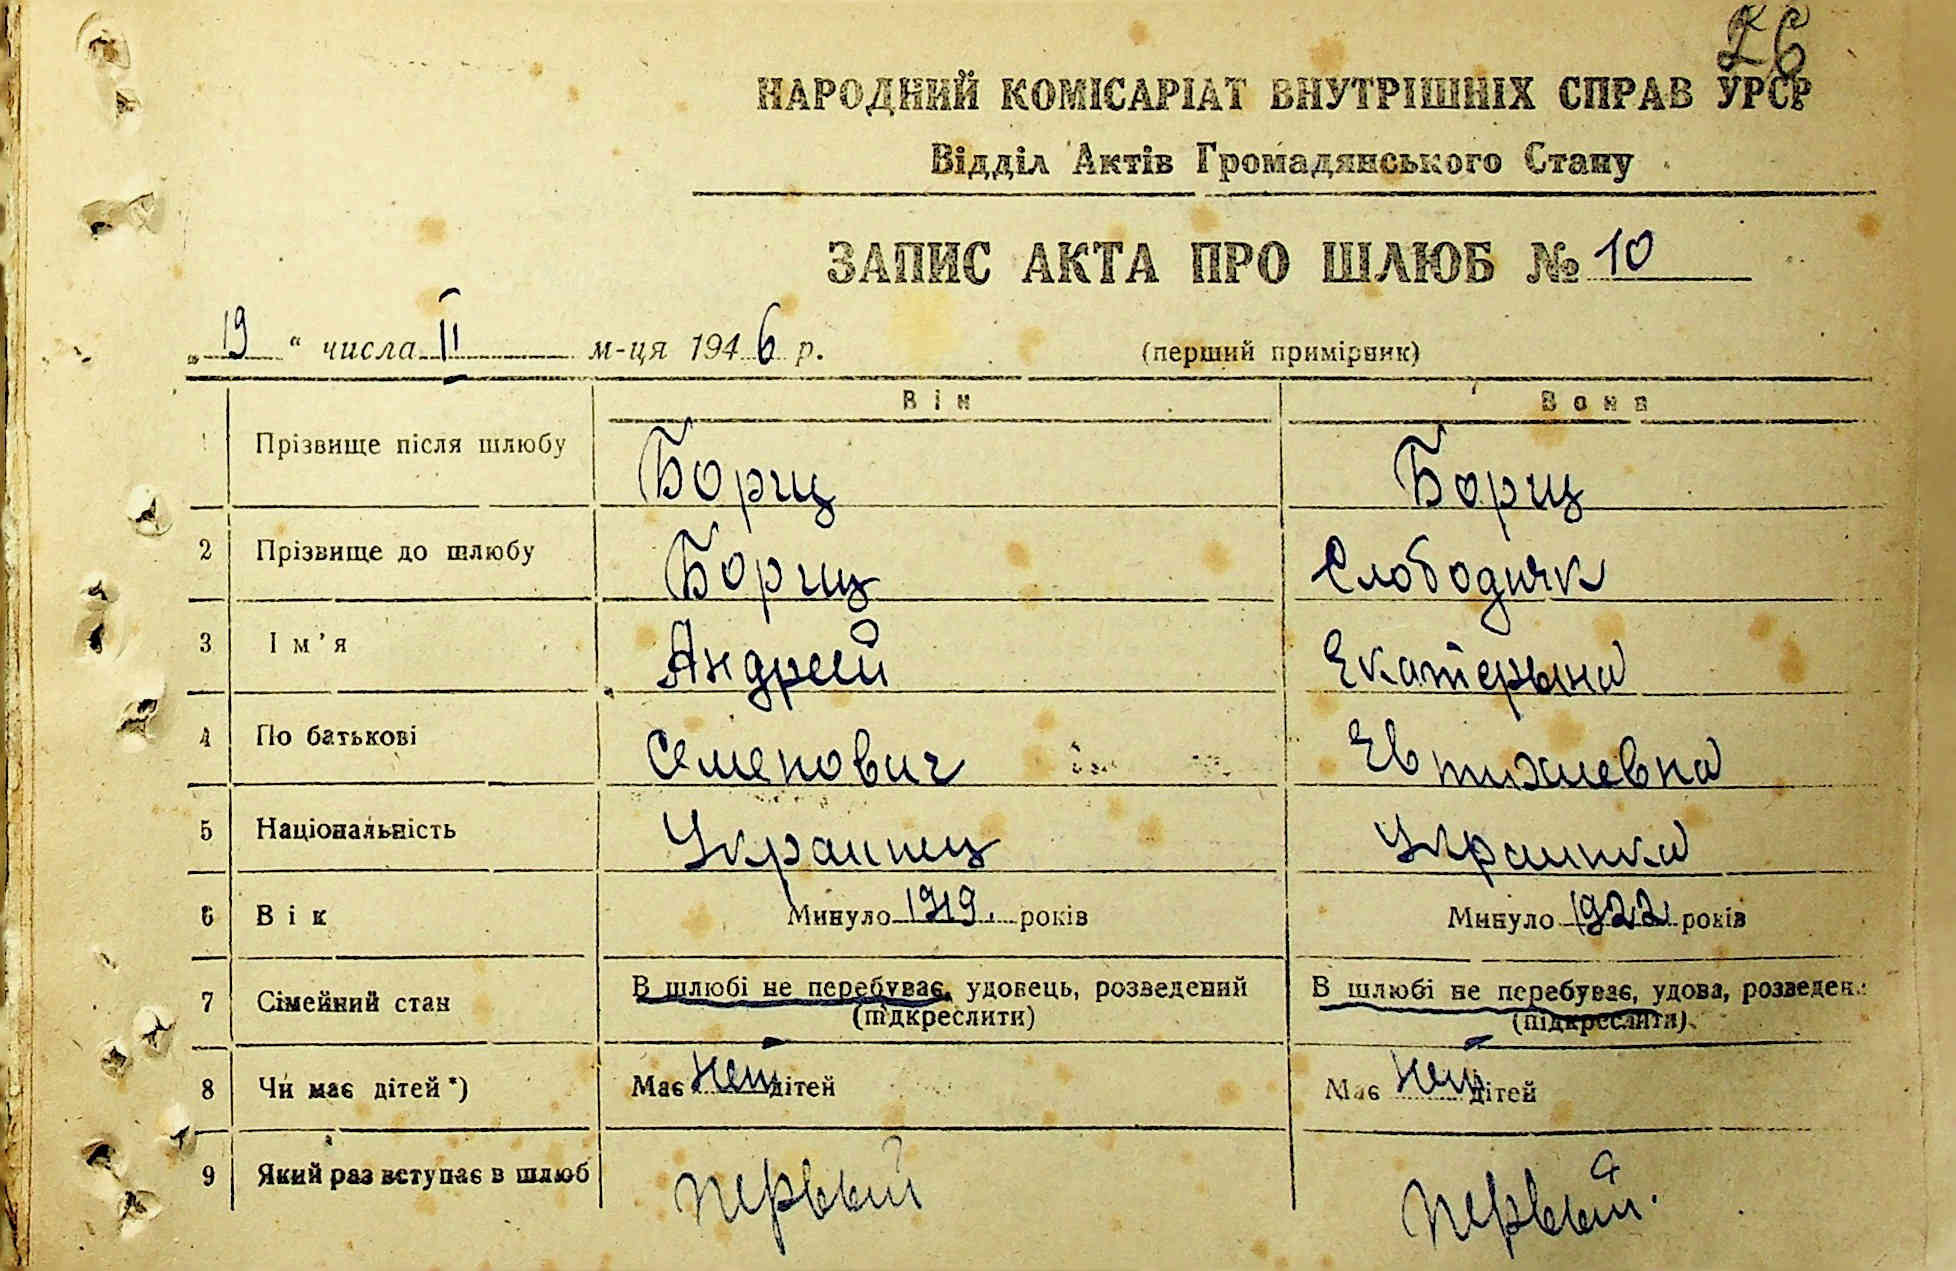 26
НАРОДНИЙ КОМІСАРІАТ ВНУТРІШНІХ СПРАВ УРСР
Відділ Актів Громадянського Стану
ЗАПИС АКТА ПРО ШЛЮБ № 10
„ 19 “ числа II м-ця 1946 р. (перший примірник)
Він Вона
1 Прізвище після шлюбу Борщ Борщ
2 Прізвище до шлюбу Борщ Слободчяк
3 Ім'я Андрей Екатерына
4 По батькові Семенович Евтихиевна
5 Національність Украинец Украинка
6 Вік Минуло 1919. років Минуло 1922 років
7 Сімейний стан В шлюбі не перебуває, удовець, розведений В шлюбі не перебуває, удова, розведена
(підкреслити) (підкреслити)
8 Чи має дітей *) Має нет дітей Має нет дітей
9 Який раз вступає в шлюб первый первый.